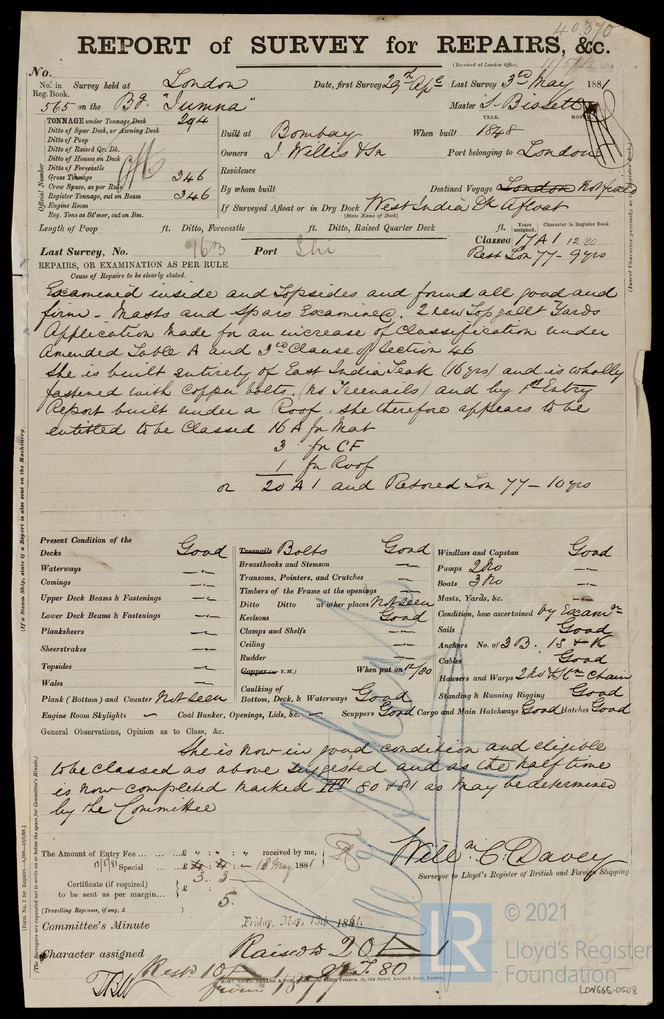 40370
REPORT of SURVEY for REPAIRS, &c.
(Received at London Office,
No.
No. in Reg. Book. Survey held at London Date, first Survey 29th Apl Last Survey 3rd May 1881
565 on the Bq. "Jumna" Master J. Bissett
TONNAGE under Tonnage Deck 294
Ditto of Spar Deck, or Awning Deck
Ditto of Poop
Ditto of Raised Qr. Dk.
Ditto of Houses on Deck
Ditto of Forecastle
Gross Tonnage 346
Crew Space, as per Rule
Register Tonnage, cut on Beam 346
Engine Room
Reg. Tons as St'mer, cut on Bm.
Official Number
YEAR. MONTH
Built at Bombay When built 1848
Owners J Willis & Sn Port belonging to London
Residence
By whom built Destined Voyage London Not fixed
If Surveyed Afloat or in Dry Dock West India Dk Afloat
(State Name of Dock)
Length of Poop ft. Ditto, Forecastle ft. Ditto, Raised Quarter Deck ft.
Years assigned. Character in Register Book.
Classed 17 A 1 12.80
Rest Lon 77 - 9 yrs
Last Survey, No. 163 Port Shi
REPAIRS, OR EXAMINATION AS PER RULE
Cause of Repairs to be clearly stated.
Examined inside and Topsides and found all good and
firm - Masts and Spars Examined. 2 new Topgallt Yards
Application made for an increase of Classification under
Amended Table A and 3rd Clause of Section 46
She is built entirely of East India Teak (16 yrs) and is wholly
fastened with Copper bolts. (No Treenails) and by 1st Entry
Report built under a Roof. She therefore appears to be
entitled to be Classed 16 A for Mat
3 for CF
1 for Roof
or 20 A 1 and Restored Lon 77 - 10 yrs
Present Condition of the
Decks Good
Waterways -
Comings -
Upper Deck Beams & Fastenings -
Lower Deck Beams & Fastenings -
Planksheers -
Sheerstrakes -
Topsides -
Wales -
Plank (Bottom) and Counter Not seen
Treenails Bolts Good
Breasthooks and Stemson -
Transoms, Pointers, and Crutches -
Timbers of the Frame at the openings -
Ditto Ditto at other places Not seen
Keelsons Good
Clamps and Shelfs -
Ceiling -
Rudder -
Copper (or Y.M.) When put on 12/80
Caulking of Bottom, Deck, & Waterways Good
Windlass and Capstan Good
Pumps 2 No
Boats 3 No
Masts, Yards, &c. -
Condition, how ascertained by Examn
Sails Good
Anchors No. of 3 B. 1 S & K
Cables Good
Hawsers and Warps 2 No & Stm Chain
Standing & Running Rigging Good
Engine Room Skylights - Coal Bunker, Openings, Lids, &c. - Scuppers Good Cargo and Main Hatchways Good Hatches Good
General Observations, Opinion as to Class, &c.
She is now in good condition and eligible
to be classed as above suggested and as the half time
is now completed marked 80 & 81 as may be determined
by the Committee
The Amount of Entry Fee ... £ " : " : " received by me,
11/5/81 Special ... £ 4 : 4 : - 18 May 1881
3. 3
Certificate (if required) to be sent as per margin... £ 5.
(Travelling Expenses, if any, £ )
Willm C. Davey
Surveyor to Lloyd's Register of British and Foreign Shipping.
Committee's Minute Friday, May, 13th 1881.
Character assigned Raised to 20 A 1
Rest. 10 A 1
from 1877
© 2021
LR
Lloyd's Register
Foundation
LON666-0508
(If a Steam Ship, state if a Report is also sent on the Machinery.